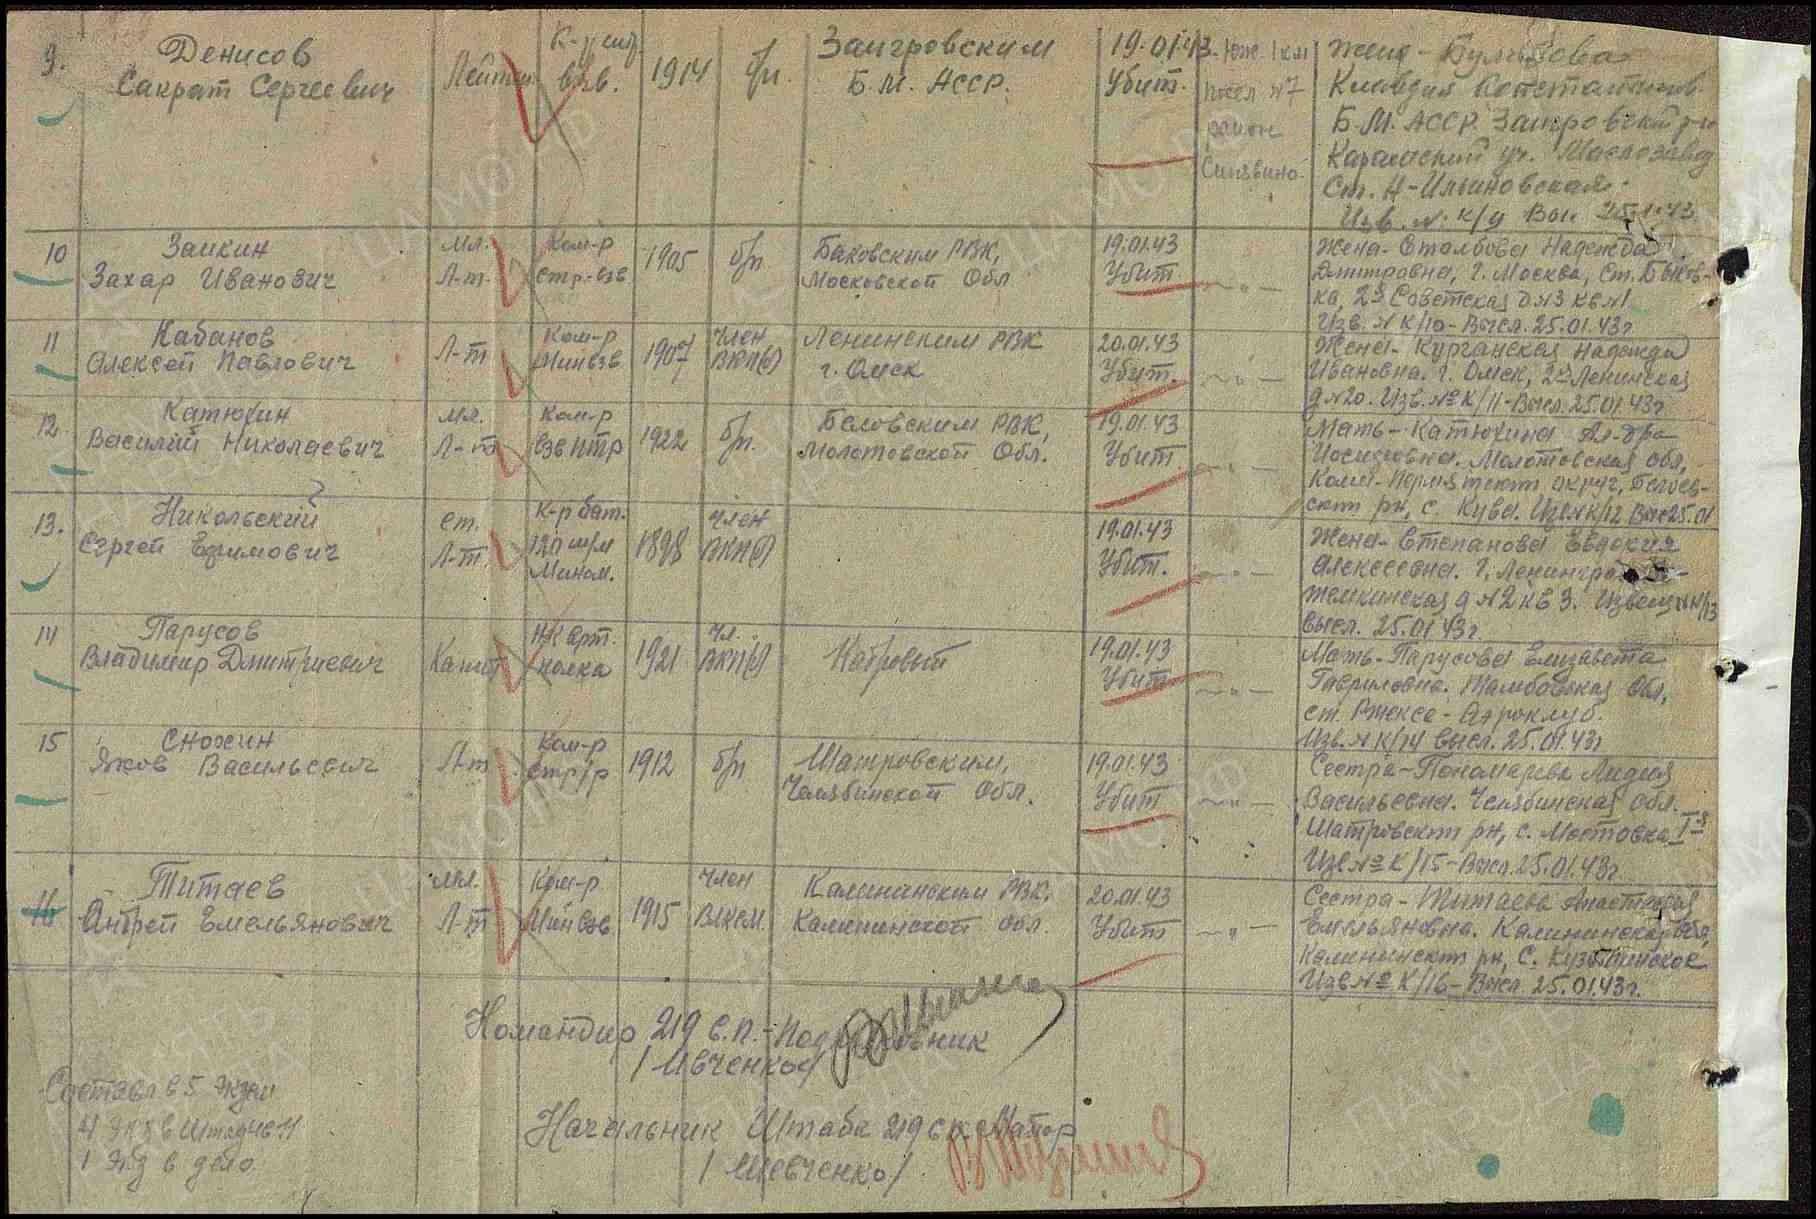 9.
Денисов
Сакрат Сергеевич
Лейтен
К-р
взв.
1914
б/п.
Заигровским
Б.М. АССР.
19.01.43
Убит.
Юж. 1 км
посел №7
район
Синявино
Жена -
Клавдия Константинов.
Б.М. АССР. Заигровский р-н
уч. Маслозавод
Ст. Н-Ильиновская.
Изв. № К/9 Выс. 25.1.43
10
Заикин
Захар Иванович
Мл.
Л-т.
Ком-р
стр. взв
1905
б/п
Баковским РВК,
Московской Обл
19.01.43
Убит
— " —
Жена - Столбова Надежда
Дмитровна, г. Москва, ст. Быков-
ка, 2я Советская д №3 кв №1
Изв. № К/10 - Высл. 25.01.43г
11
Кабанов
Алексей Павлович
Л-т
Ком-р
Мин взв
1907
Член
ВКП(б)
Ленинским РВК
г. Омск
20.01.43
Убит.
— " —
Жена - Курганская Надежда
Ивановна. г. Омск, 2я Ленинская
д №20. Изв. № К/11 - Высл. 25.01.43г
12.
Катюхин
Василий Николаевич
Мл.
Л-т
Ком-р
взв ПТР
1922
б/п.
Беловским РВК,
Молотовской Обл.
19.01.43
Убит
— " —
Мать - Катюхина Ал-дра
Молотовская обл,
Коми-Пермятский округ, Белоев-
ский рн, с. Кува. Изв № К/12 Выс 25.01
13.
Никольский
Сергей Ефимович
ст.
Л-т.
К-р бат.
120 м/м
Мином.
1898
Член
ВКП(б)
19.01.43
Убит.
— " —
Жена - Степанова Евдокия
Алексеевна. г. Ленинград
д №2 кв 3. Извещ № К/13
высл. 25.01.43г
14
Парусов
Владимир Дмитриевич
Капит
НК Арт.
полка
1921
Чл.
ВКП(б)
Кадровый
19.01.43
Убит
— " —
Мать - Парусова Елизавета
Гавриловна. Тамбовская Обл,
ст. Ржакса - Аэроклуб.
Изв. № К/14 высл. 25.01.43г
15
Снохин
Яков Васильевич
Л-т
Ком-р
стр/р
1912
б/п
Шатровским,
Челябинской Обл.
19.01.43
Убит
— " —
Сестра - Пономарева Лидия
Васильевна. Челябинская обл.
Шатровский рн, с. Мостовка I-я
Изв № К/15 - Высл. 25.01.43г
16
Титаев
Андрей Емельянович
Мл.
Л-т
Ком-р
Мин взв
1915
Член
ВЛКСМ.
Калининским РВК,
Калининской обл.
20.01.43
Убит
— " —
Сестра - Титаева Анастасия
Емельяновна. Калининская обл,
Калининский рн, С.
Изв № К/16 - Высл. 25.01.43г.
Командир 219 с.п. - Подполковник
/Ивченко/
Составл в 5 экзем
4 экз в Штадив 11
1 экз в дело
Начальник Штаба 219 сп Майор
/Шевченко/